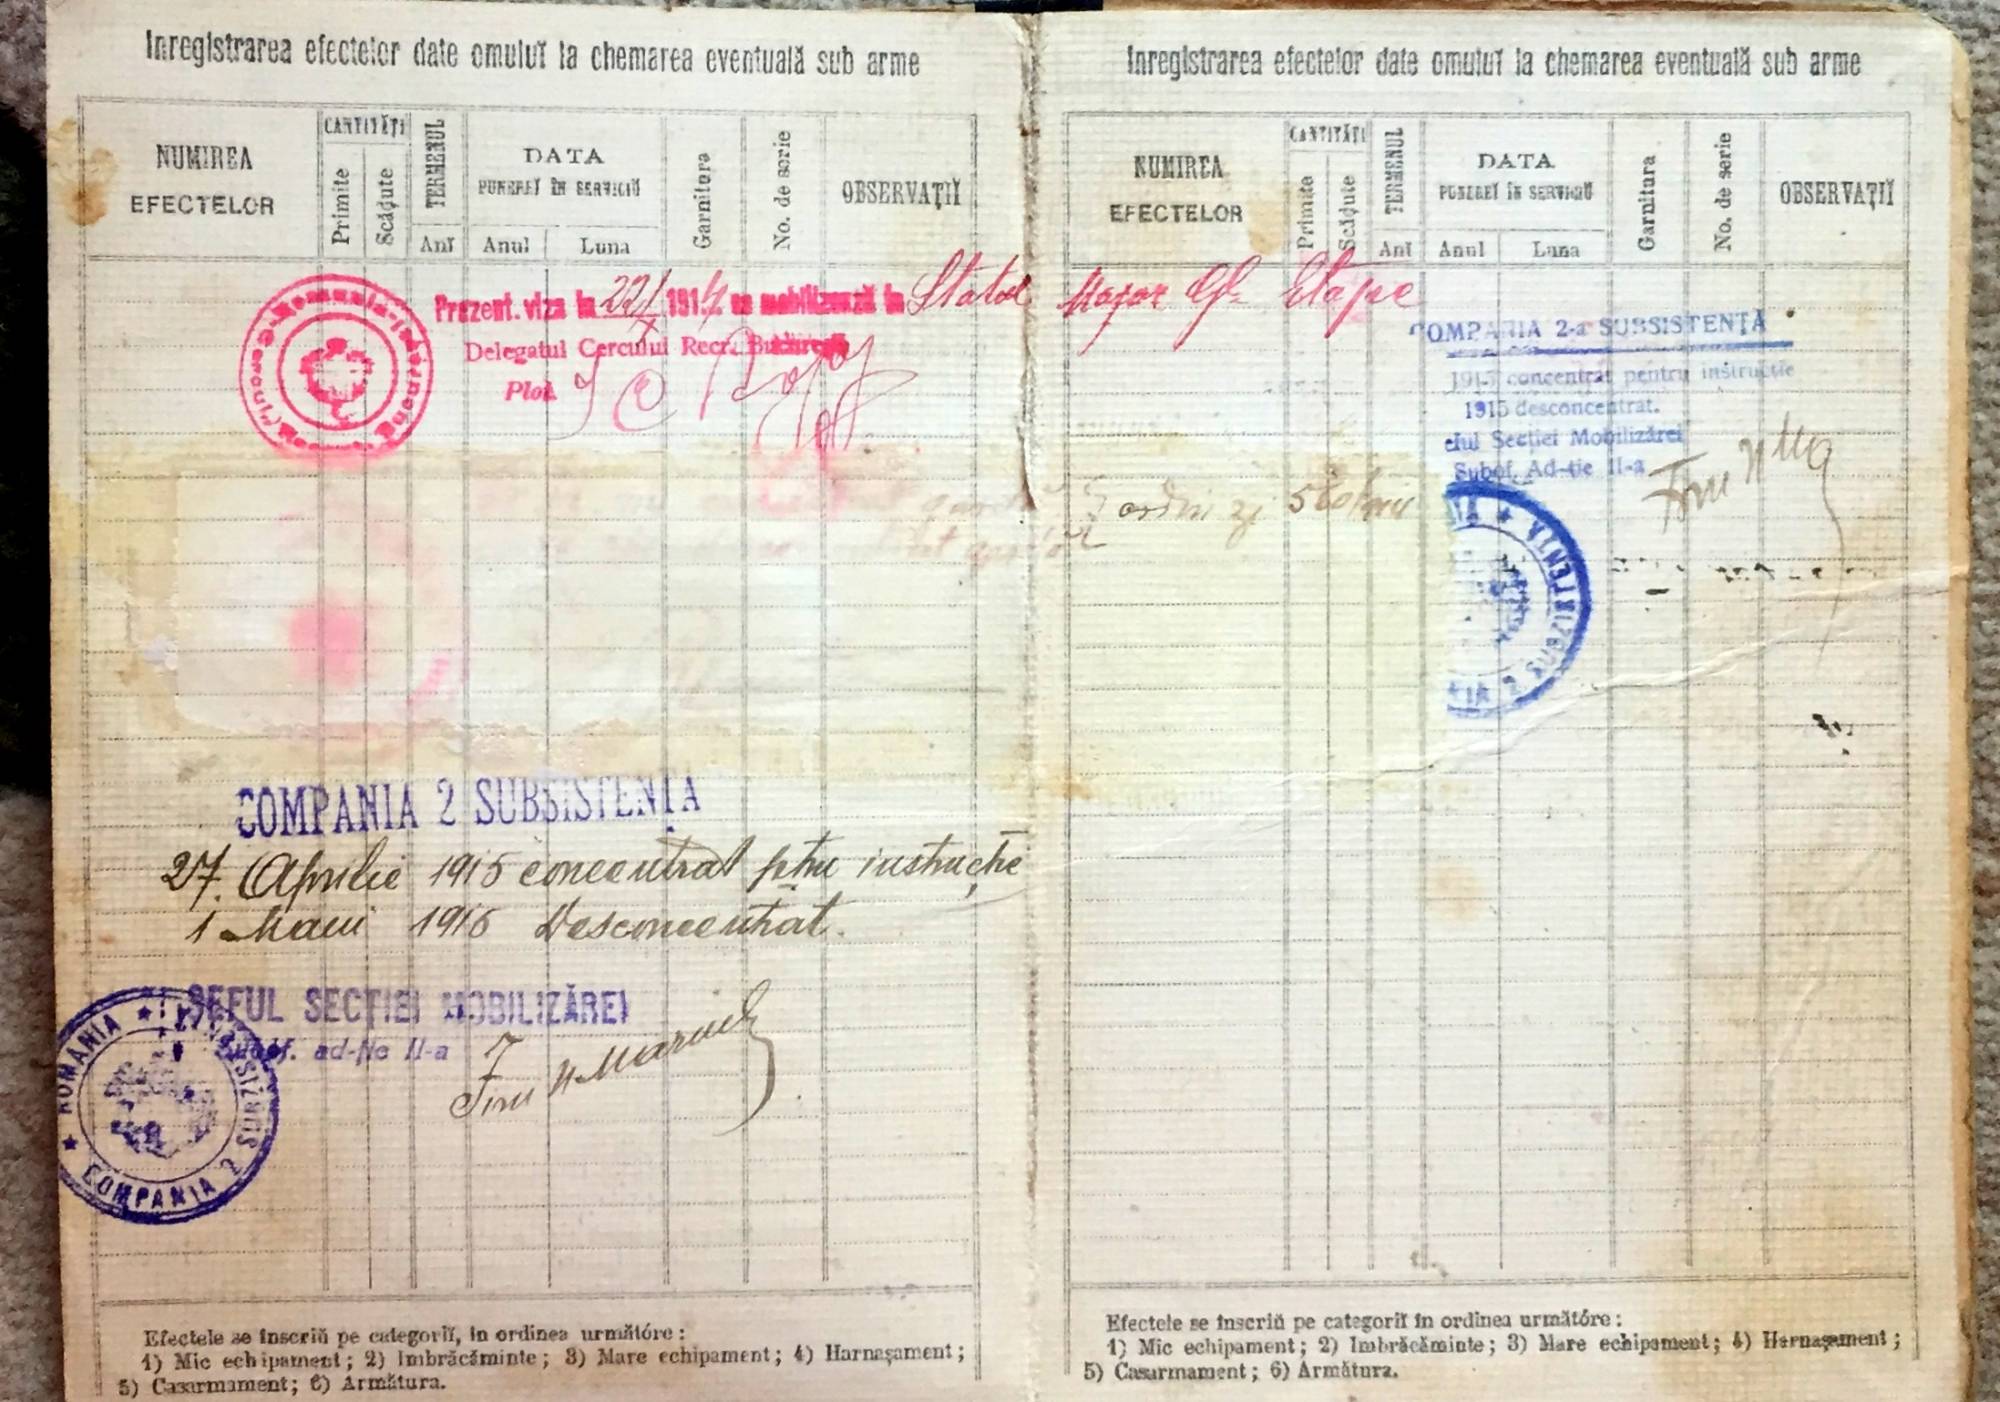 Inregistrarea efectelor date omuluĭ la chemarea eventuală sub arme
NUMIREA EFECTELOR
CANTITĂȚI
Primite
Scăḑute
TERMENUL
Anĭ
DATA
PUNEREĬ ÎN SERVICIŬ
Anul
Luna
Garnitura
No. de serie
OBSERVAȚIĬ
Prezent. viza la 22/X 1914 se mobilizează în Statul Major Gl. Etape
Delegatul Cercului Recr. București
Plot.
COMPANIA 2 SUBSISTENȚA
27. Aprilie 1915 concentrat ptru instrucție
1 Maiu 1915 Desconcentrat.
ȘEFUL SECȚIEI MOBILIZĂREI
Subof. ad-ție II-a
★ ROMANIA ★
COMPANIA 2 SUBZISTENȚA
Efectele se înscriŭ pe categoriĭ, în ordinea următóre:
1) Mic echipament; 2) Imbrăcăminte; 3) Mare echipament; 4) Harnașament;
5) Casarmament; 6) Armătura.
Inregistrarea efectelor date omuluĭ la chemarea eventuală sub arme
NUMIREA EFECTELOR
CANTITĂȚI
Primite
Scăḑute
TERMENUL
Anĭ
DATA
PUNEREĬ ÎN SERVICIŬ
Anul
Luna
Garnitura
No. de serie
OBSERVAȚIĬ
COMPANIA 2-a SUBSISTENȚA
1915 concentrat pentru instrucție
1915 desconcentrat.
Secției Mobilizărei
Subof. Ad-ție II-a
ordin zi
2 SUBZISTENȚA
Efectele se înscriŭ pe categoriĭ în ordinea următóre:
1) Mic echipament; 2) Imbrăcăminte; 3) Mare echipament; 4) Harnașament;
5) Casarmament; 6) Armătura.